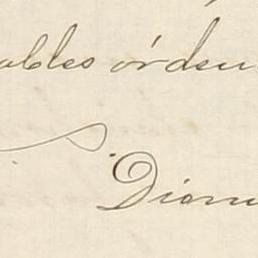 ables órden
Dioni